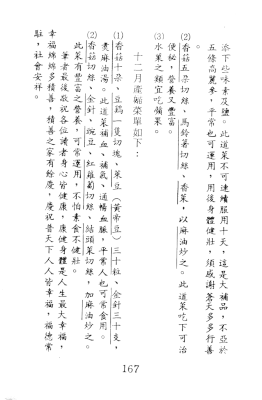 添下些味素及鹽。此道菜不可連續服用十天,這是大補品,不亞於
五條高麗參,平常也可運用,用後身體健壯,須感謝蒼天多多行善
(2)香菇五朵切絲、馬鈴薯切絲、香菜,以麻油炒之。此道菜吃下可治
便秘,營養又豐富。
(3)水菜之類宜吃蘋果。
十二月產婦菜單如下:
(1)香菇十朵、豆鷄一隻切塊、萊豆(黃帝豆)三十粒、金針三十支,
煲麻油湯。此道菜補血、補氣、通暢血脈,平常人也可常食用。
(2)香菇切絲、金針、豌豆、紅蘿蔔切絲、結頭菜切絲,加麻油炒之。
此菜有豐富之營養,可常運用,不怕素食不健壯。
筆者最後敬祝各位讀者身心皆健康,康健身體是人生最大幸福,
幸福綿綿多積善,積善之家有餘慶,慶祝普天下人人皆幸福,福德常
駐,社會安祥。
167